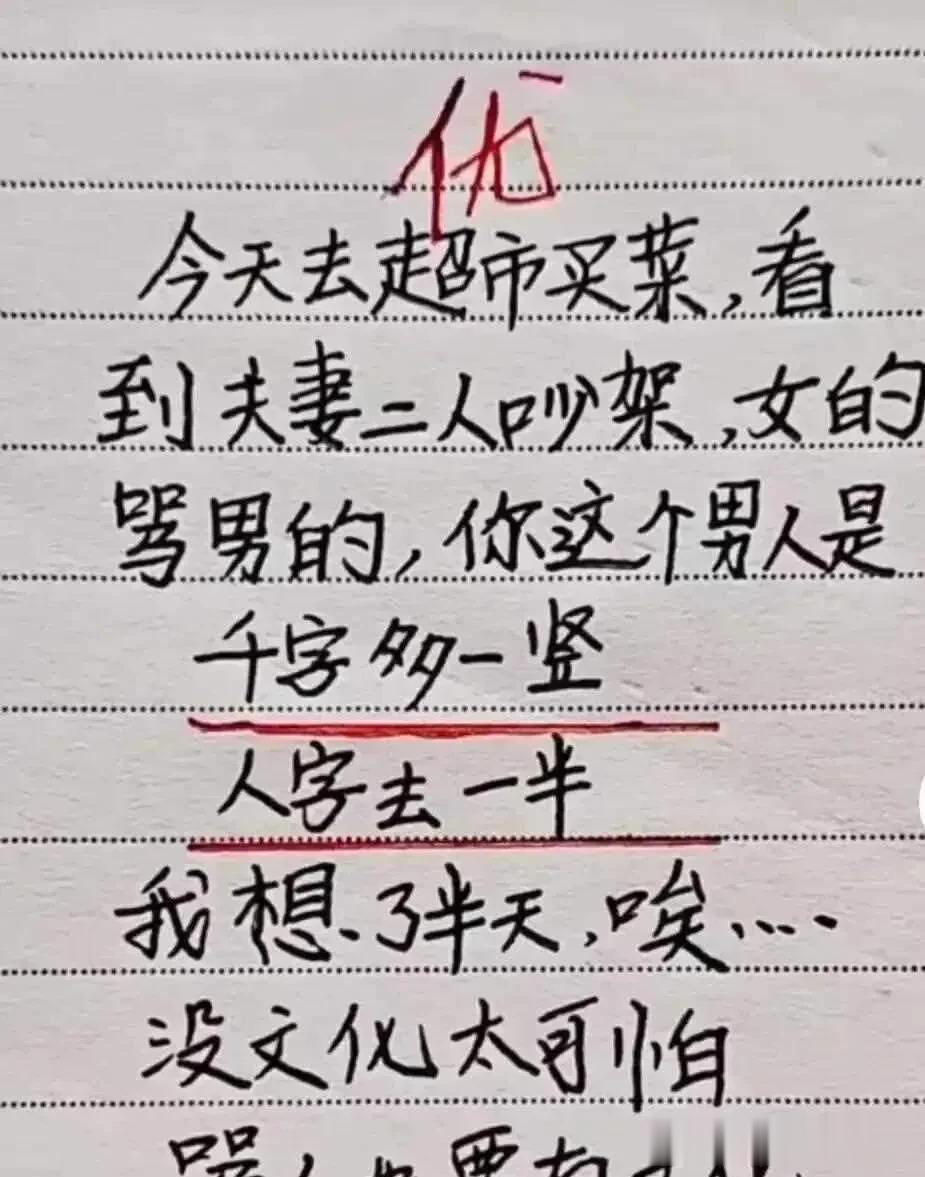 优
今天去超市买菜,看
到夫妻二人吵架,女的
骂男的,你这个男人是
千字多一竖
人字去一半
我想了半天,唉……
没文化太可怕
骂人也要有